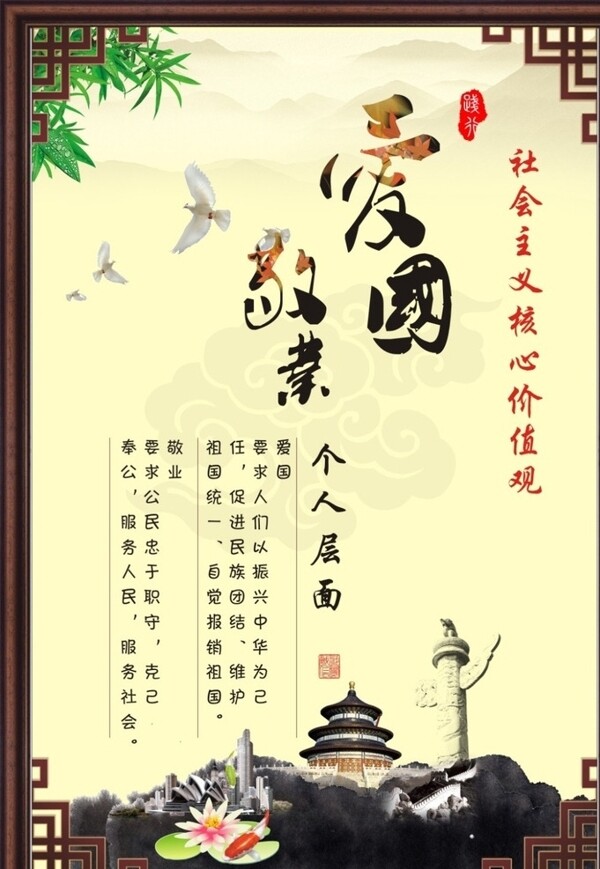 践行
社会主义核心价值观
爱國
敬業
个人层面
爱国
要求人们以振兴中华为己
任，促进民族团结、维护
祖国统一、自觉报销祖国。
敬业
要求公民忠于职守，克己
奉公，服务人民，服务社会。